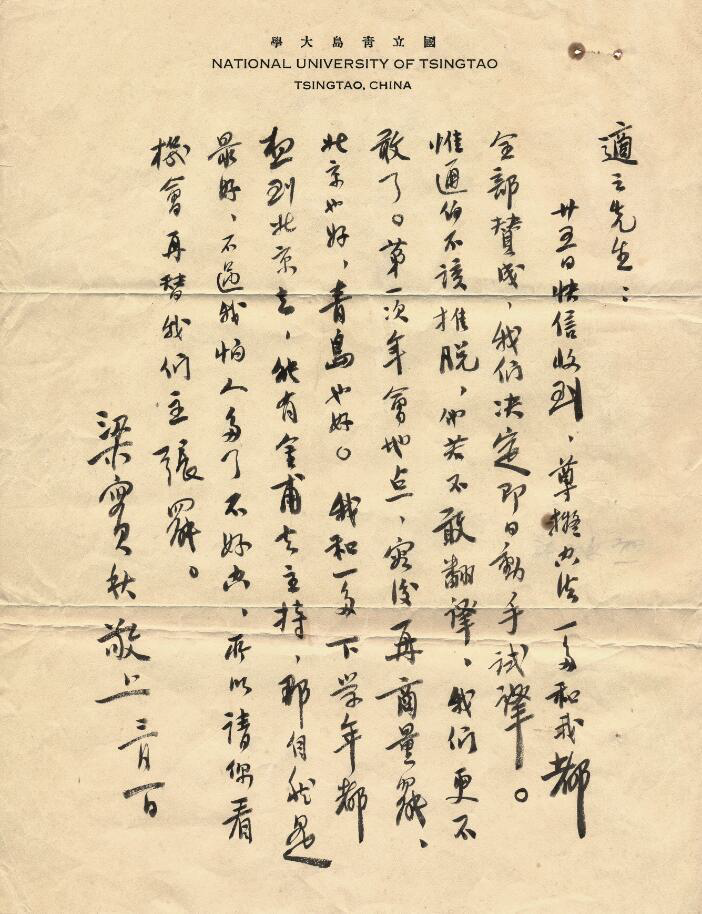 學大島青立國
NATIONAL UNIVERSITY OF TSINGTAO
TSINGTAO, CHINA
適之先生：
廿五日快信收到，尊擬办法一多和我都
全部賛成，我们决定即日動手試譯。
惟通伯不该推脱，他若不敢翻譯，我们更不
敢了。第一次年會地点，容後再商量罷，
北京也好，青島也好。我和一多下学年都
想到北京去，能有金甫去主持，那自然是
最好，不過我怕人多了不好办，所以請你看
機會再替我们主張罷。
梁實秋敬上 三月一日